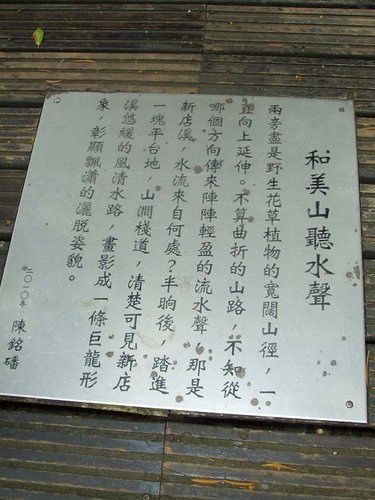 和美山聽水聲
兩旁盡是野生花草植物的寬闊山徑，一
直向上延伸。不算曲折的山路，不知從
哪個方向傳來陣陣輕盈的流水聲，那是
新店溪，水流來自何處？半晌後，踏進
一塊平台地，山澗棧道，清楚可見新店
溪悠緩的風清水路，畫影成一條巨龍形
象，彰顯飄瀟的灑脫姿貌。
二○一○年 陳銘磻